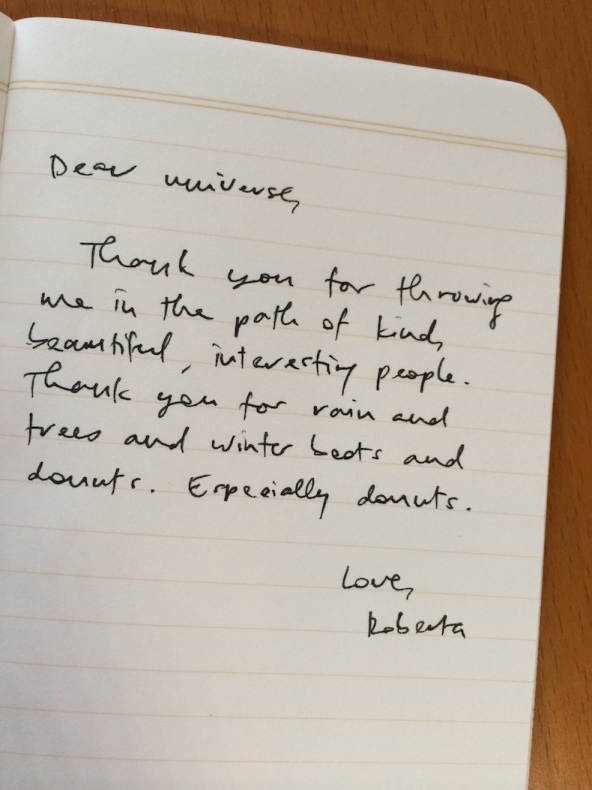 Dear universe,
Thank you for throwing
me in the path of kind,
beautiful, interesting people.
Thank you for rain and
trees and winter boots and
donuts. Especially donuts.
Love,
Roberta